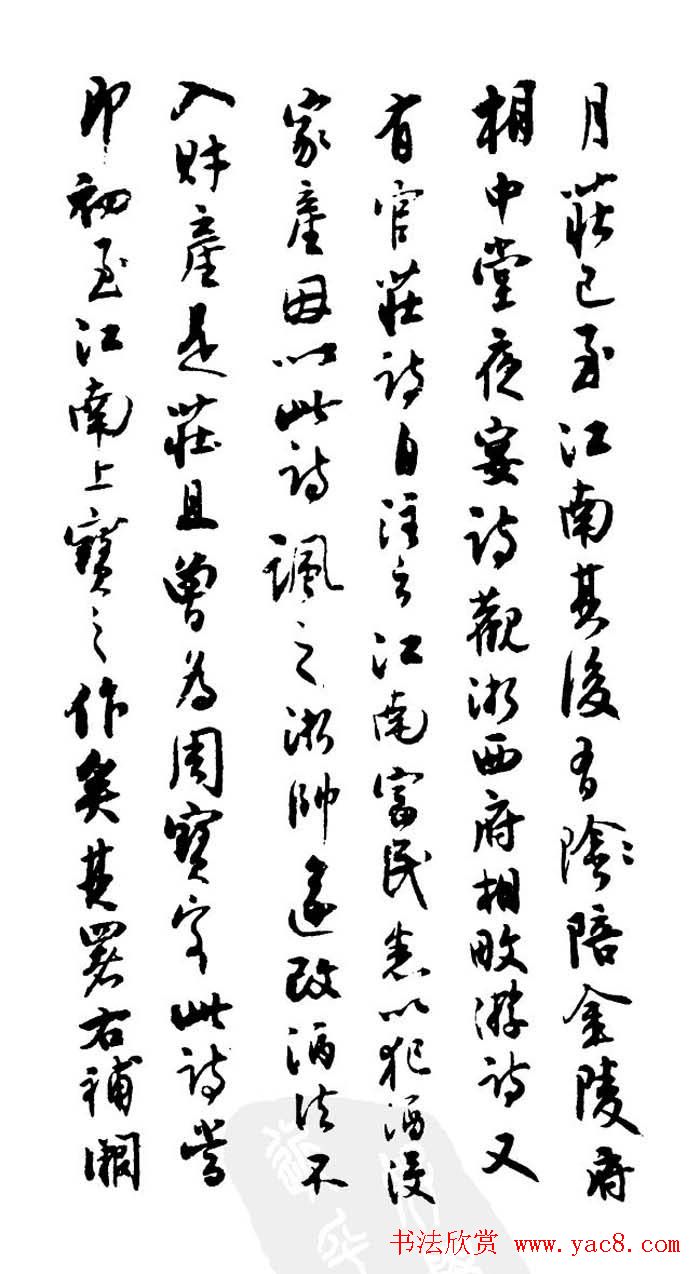 月莊已至江南其後有陰陪金陵府
相中堂夜宴詩觀浙西府相畋游詩又
有官莊詩自注云江南富民悉以犯酒沒
家產因以此詩諷之浙帥遂改酒法不
入財產是莊且曾為周寶客此詩當
即初至江南上寶之作矣其署右補闕
书法欣赏 www.yac8.com